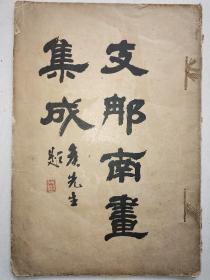 支那南畫
集成
矦先生
題